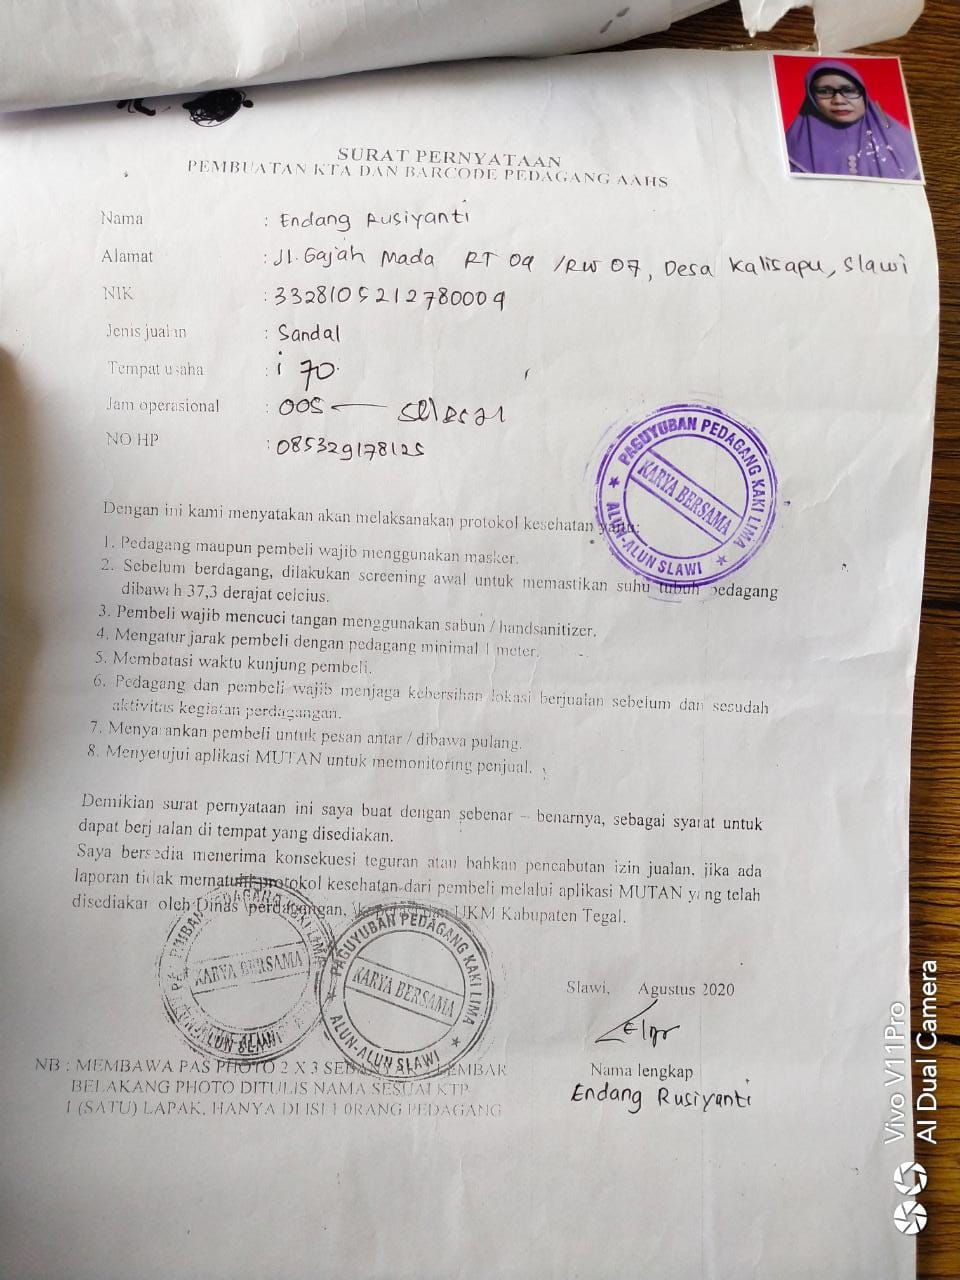 SURAT PERNYATAAN
PEMBUATAN KTA DAN BARCODE PEDAGANG AAHS
Nama : Endang Rusiyanti
Alamat : Jl. Gajah Mada RT 09 /RW 07, Desa Kalisapu, Slawi
NIK : 3328105212780009
Jenis jualan : Sandal
Tempat usaha : i 70
Jam operasional :
NO HP : 085329178125
PAGUYUBAN PEDAGANG KAKI LIMA
KARYA BERSAMA
ALUN-ALUN SLAWI
Dengan ini kami menyatakan akan melaksanakan protokol kesehatan yaitu:
1. Pedagang maupun pembeli wajib menggunakan masker.
2. Sebelum berdagang, dilakukan screening awal untuk memastikan suhu tubuh pedagang
dibawah 37,3 derajat celcius.
3. Pembeli wajib mencuci tangan menggunakan sabun / handsanitizer.
4. Mengatur jarak pembeli dengan pedagang minimal 1 meter.
5. Membatasi waktu kunjung pembeli.
6. Pedagang dan pembeli wajib menjaga kebersihan lokasi berjualan sebelum dan sesudah
aktivitas kegiatan perdagangan.
7. Menyarankan pembeli untuk pesan antar / dibawa pulang.
8. Menyetujui aplikasi MUTAN untuk memonitoring penjual.
Demikian surat pernyataan ini saya buat dengan sebenar – benarnya, sebagai syarat untuk
dapat berjualan di tempat yang disediakan.
Saya bersedia menerima konsekuesi teguran atau bahkan pencabutan izin jualan, jika ada
laporan tidak mematuhi protokol kesehatan dari pembeli melalui aplikasi MUTAN yang telah
disediakan oleh Dinas perdagangan, UKM Kabupaten Tegal.
PEDAGANG KAKI LIMA
KARYA BERSAMA
ALUN-ALUN SLAWI
PAGUYUBAN PEDAGANG KAKI LIMA
KARYA BERSAMA
ALUN-ALUN SLAWI
Slawi, Agustus 2020
Nama lengkap
Endang Rusiyanti
NB : MEMBAWA PAS PHOTO 2 X 3 LEMBAR
BELAKANG PHOTO DITULIS NAMA SESUAI KTP
1 (SATU) LAPAK, HANYA DI ISI 1 ORANG PEDAGANG
Vivo V11Pro
AI Dual Camera